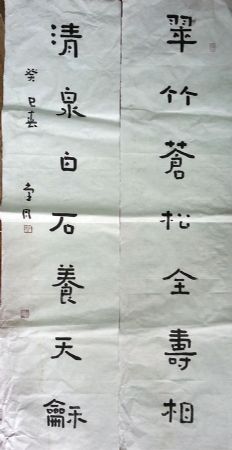 翠竹蒼松全壽相
清泉白石養天龢
癸巳春